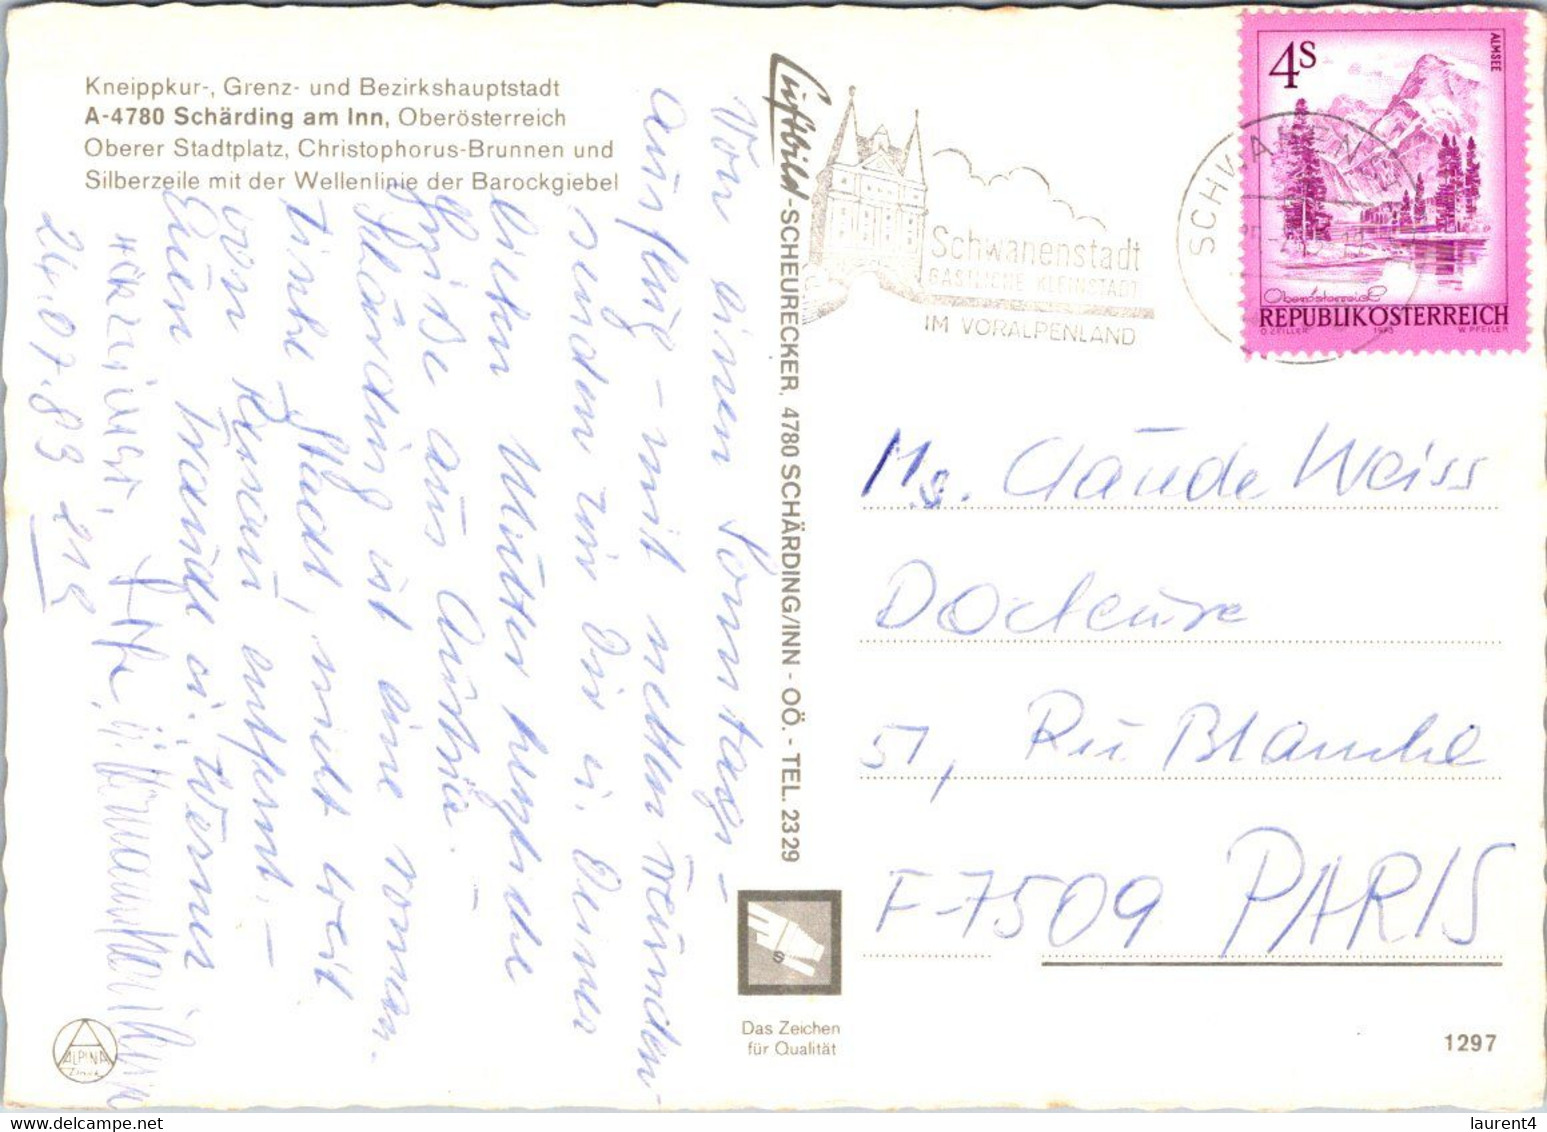 Kneippkur-, Grenz- und Bezirkshauptstadt
A-4780 Schärding am Inn, Oberösterreich
Oberer Stadtplatz, Christophorus-Brunnen und
Silberzeile mit der Wellenlinie der Barockgiebel
Luftbild-SCHEURECKER, 4780 SCHÄRDING/INN - OÖ. - TEL. 2329
Von einem Sonntags-
ausflug - mit netten Freunden -
senden wir Dir u. Deiner
lieben Mutter herzliche
Grüße aus Austria. -
Schärding ist eine roman-
tische Stadt, nicht weit
von Passau entfernt. -
Euer u. Werner
herzlichst
24.07.89
Schwanenstadt
GASTLICHE KLEINSTADT
IM VORALPENLAND
SCHWANEN
4 S
ALMSEE
Oberösterreich
REPUBLIK ÖSTERREICH
O. ZEILLER 1973 W. PFEILER
Ms. Claude Weiss
Docteure
51, Ru Blanche
F-7509 PARIS
ALPINA
Das Zeichen
für Qualität
1297
laurent4